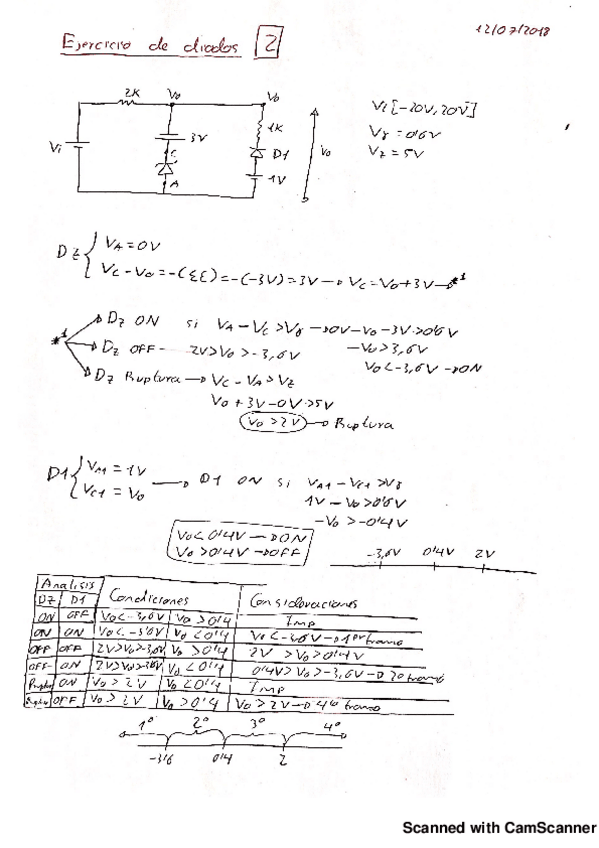 12/07/2018
Ejercicio de diodos 2
2K Vo Vo
Vi 3V 1K D1 1V Vo
C
A
Vi [-20V, 20V]
Vγ = 0'6V
Vz = 5V
Dz { VA = 0V
VC - Vo = -(ΣE) = -(-3V) = 3V → VC = Vo + 3V → *1
*1 Dz ON si VA - VC > Vγ → 0V - Vo - 3V > 0'6V
Dz OFF - 2V > Vo > -3,6V - Vo > 3,6V
Vo < -3,6V → ON
Dz Ruptura → VC - VA > Vz
Vo + 3V - 0V > 5V
Vo > 2V → Ruptura
D1 { VA1 = 1V
VC1 = Vo → D1 ON si VA1 - VC1 > Vγ
1V - Vo > 0'6V
-Vo > -0'4V
Vo < 0'4V → ON
Vo > 0'4V → OFF
-3,6V 0'4V 2V
Analisis
DZ D1 Condiciones Consideraciones
ON OFF Vo < -3,6V Vo > 0'4 Imp
ON ON Vo < -3'6V Vo < 0'4 Vo < -3,6V → 1er tramo
OFF OFF 2V > Vo > -3,6V Vo > 0'4 2V > Vo > 0'4V
OFF ON 2V > Vo > -3,6V Vo < 0'4 0'4V > Vo > -3,6V → 2º tramo
Ruptu ON Vo > 2V Vo < 0'4V Imp
Ruptu OFF Vo > 2V Vo > 0'4 Vo > 2V → 4º tramo
1º 2º 3º 4º
-3'6 0'4 2
Scanned with CamScanner